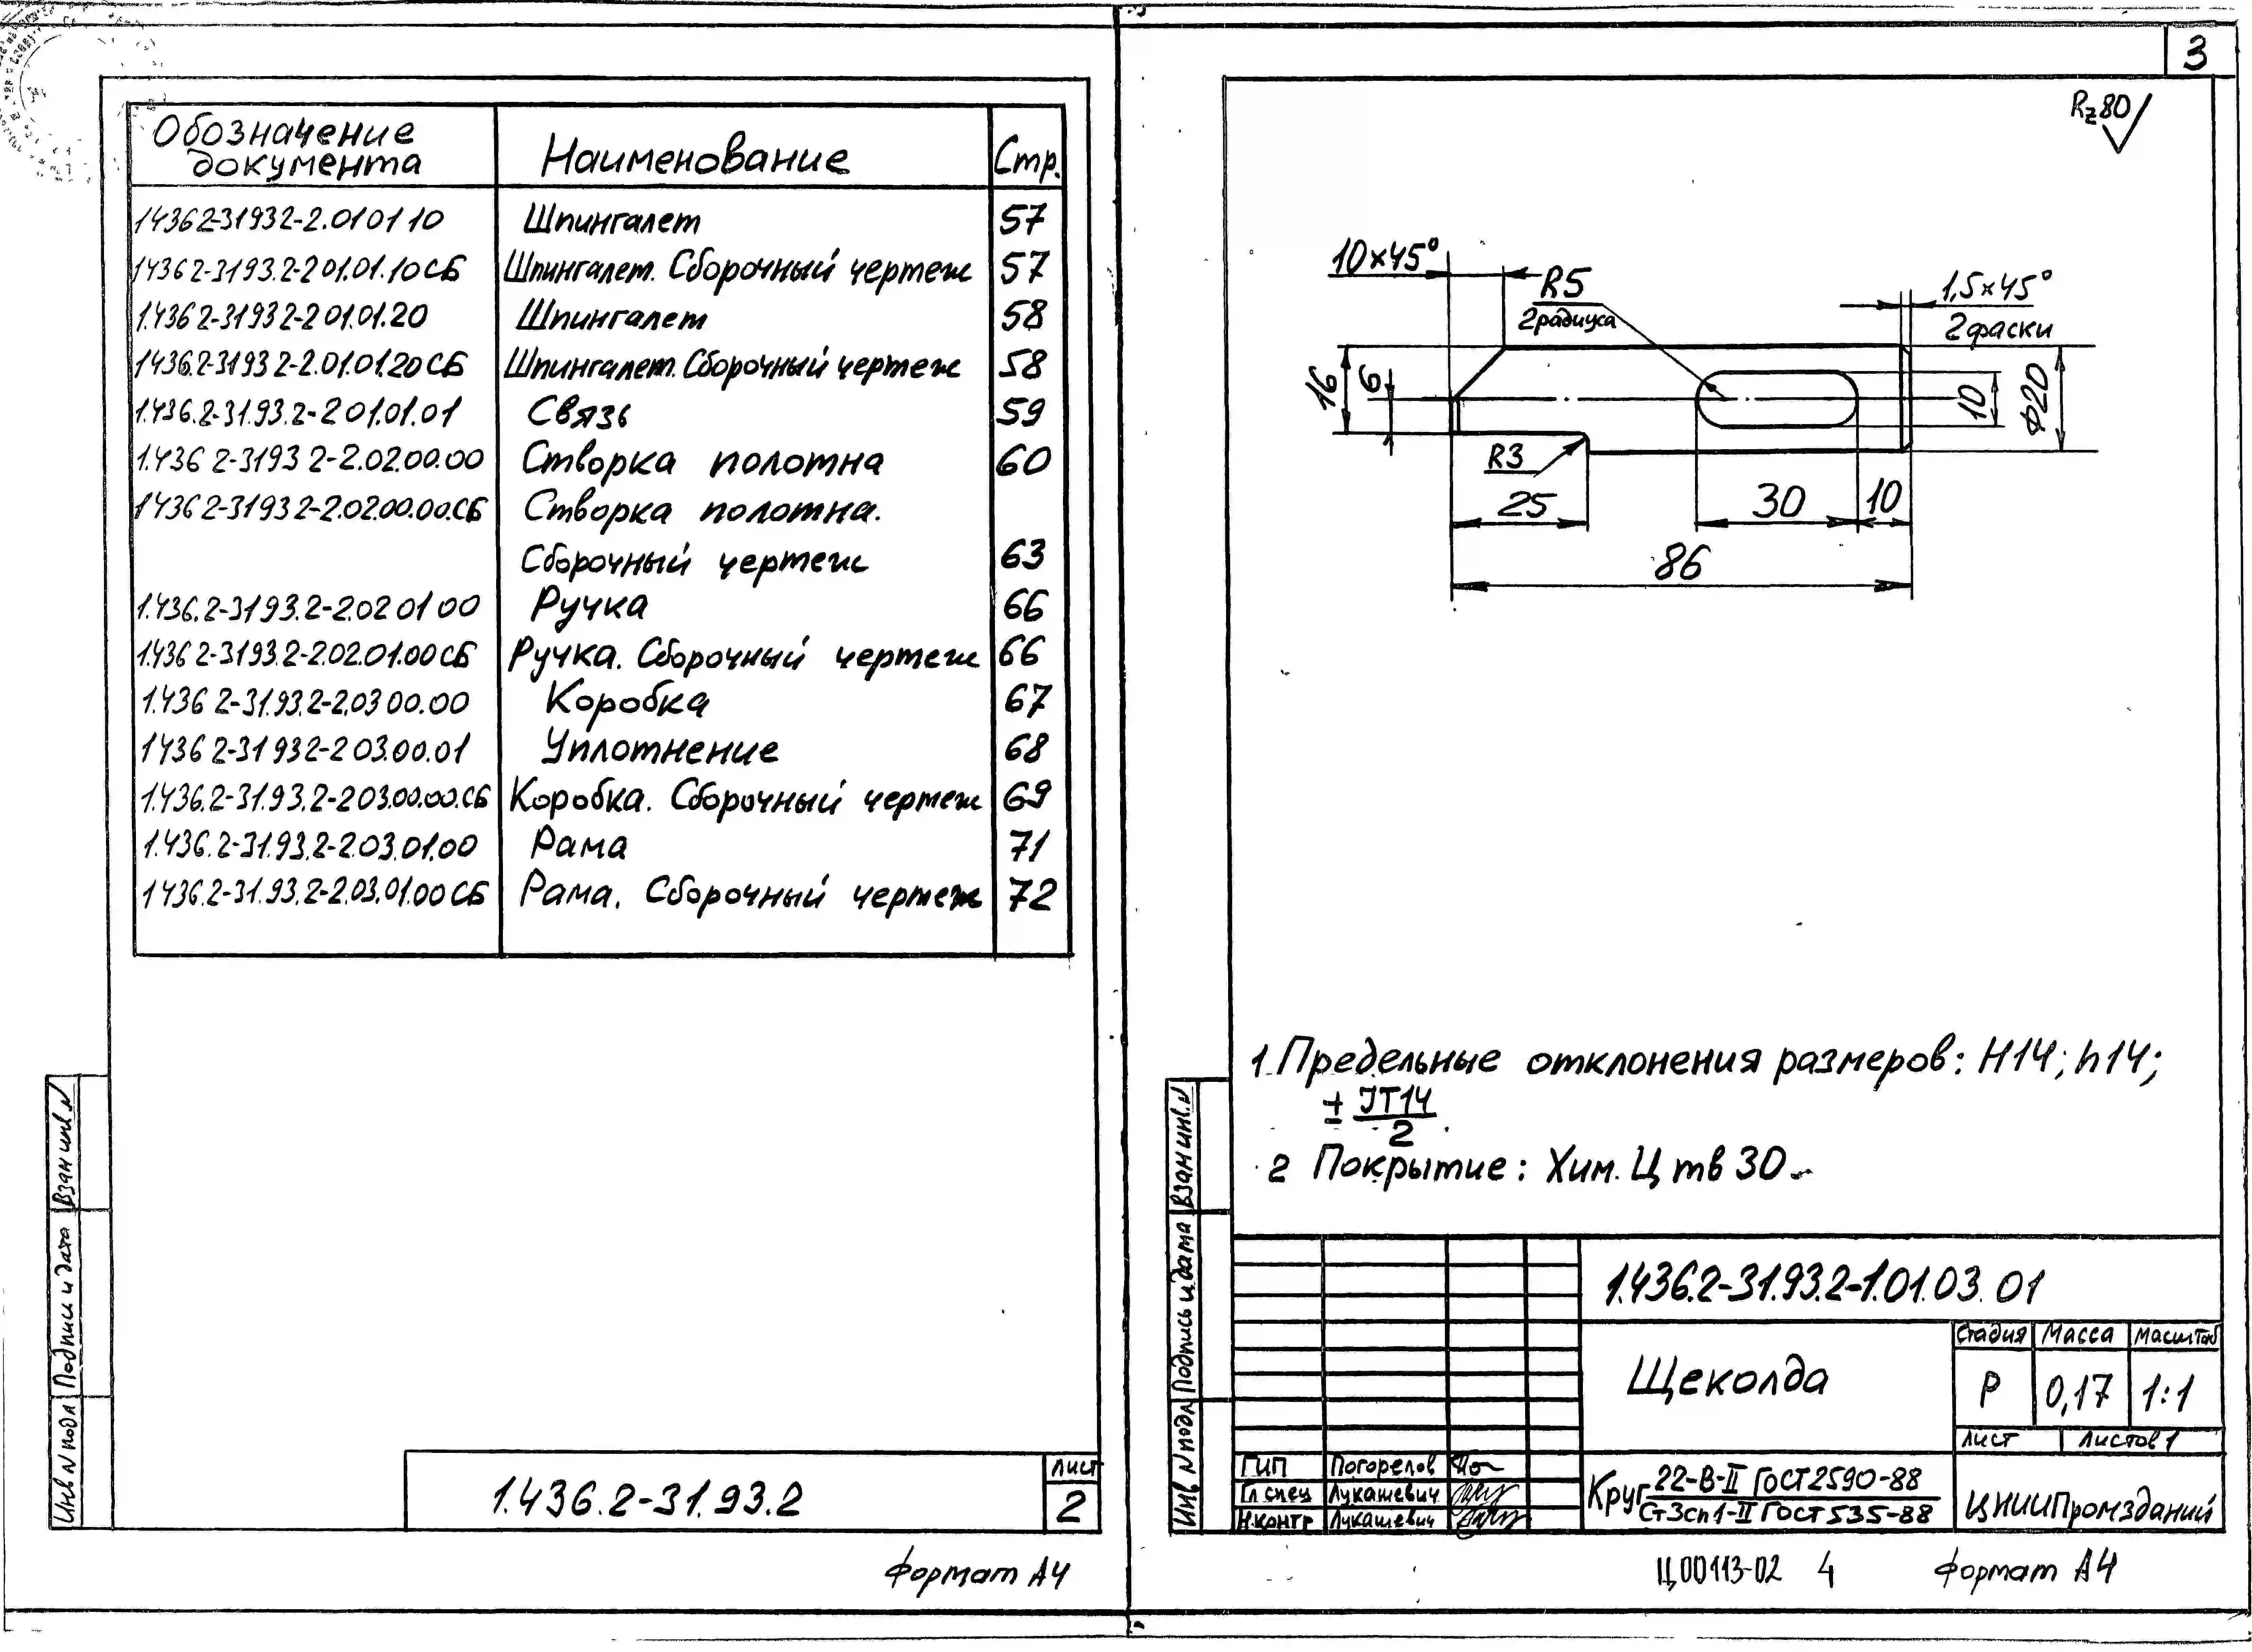 Обозначение документа Наименование Стр.
1.436 2-31932-2.010110 Шпингалет 57
1.436 2-3193.2-2 01.01.10СБ Шпингалет. Сборочный чертеж 57
1.436 2-31932-2 01.01.20 Шпингалет 58
1436.2-3193 2-2.01.01.20СБ Шпингалет. Сборочный чертеж 58
1.436.2-31.93.2-2 01.01.01 Связь 59
1.436 2-3193 2-2.02.00.00 Створка полотна 60
1436 2-3193 2-2.02.00.00.СБ Створка полотна.
Сборочный чертеж 63
1.436.2-3193.2-2.02 01 00 Ручка 66
1.436 2-3193.2-2.02.01.00СБ Ручка. Сборочный чертеж 66
1.436 2-31.93.2-2.03 00.00 Коробка 67
1436 2-31932-2 03.00.01 Уплотнение 68
1.436.2-31.93.2-2 03.00.00.СБ Коробка. Сборочный чертеж 69
1.436.2-31.93.2-2.03.01.00 Рама 71
1436.2-31.93.2-2.03.01.00 СБ Рама. Сборочный чертеж 72
Взам инв. N
Подпись и дата
Инв N подл
1.436.2-31.93.2
Лист
2
Формат А4
3
Rz80
10×45°
R5
2 радиуса
1,5×45°
2 фаски
16
6
10
ф20
R3
25
30
10
86
1 Предельные отклонения размеров: H14; h14;
± IT14
2
2 Покрытие: Хим. Ц тв 30
Взам инв. N
Подпись и дата
Инв N подл
1.436.2-31.93.2-1.01.03.01
Щеколда
Стадия Масса Масштаб
Р 0,17 1:1
Лист Листов 1
ГИП Погорелов
Гл спец Лукашевич
Н.контр Лукашевич
Круг 22-В-II ГОСТ 2590-88
Ст3сп1-II ГОСТ 535-88
ЦНИИПромзданий
Ц00113-02 4
Формат А4